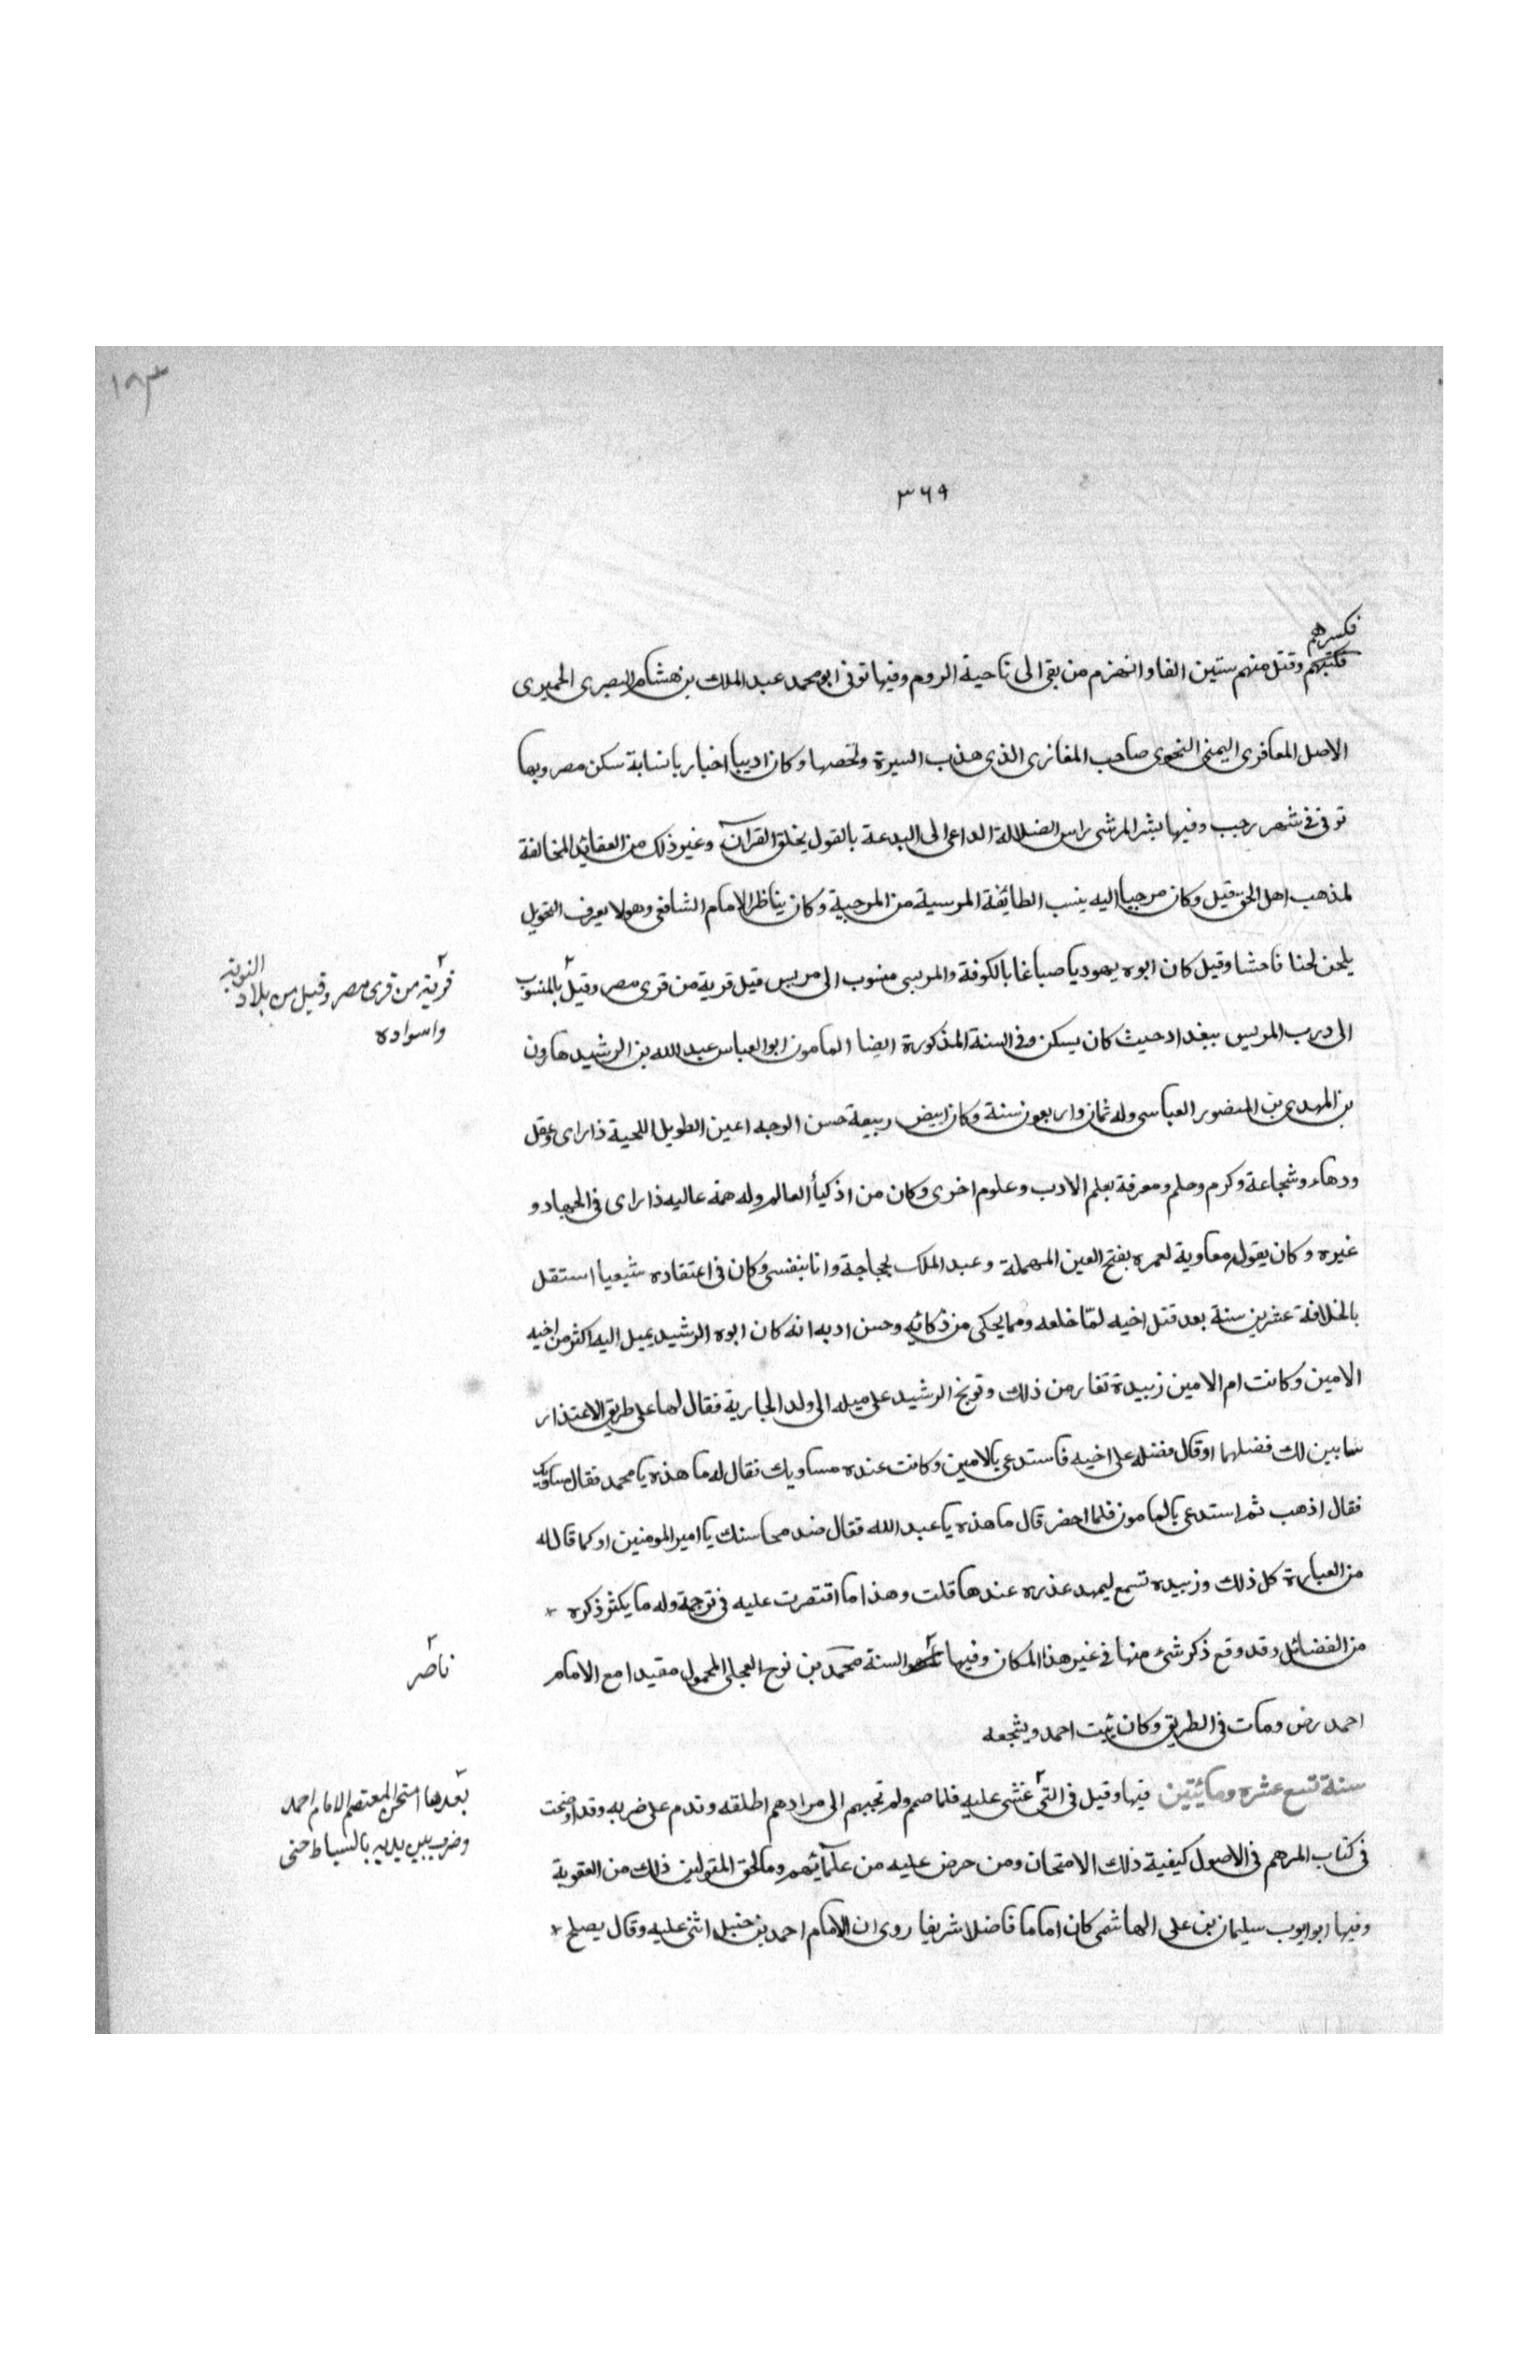 ١٨٣
٣٦٩
فكسرهم
فكتبهم وقتل منهم ستين الفا وانهزم من بقى الى ناحية الروم وفيها توفى ابو محمد عبد الملك بن هشام البصرى الحميرى
الاصل المعافرى اليمنى النحوى صاحب المغازى الذى هذب السيرة ولخصها وكان اديبا اخباريا نسابة سكن مصر وبها
توفى فى شهر رجب وفيها بشر المرشى راس الضلالة الداعى الى البدعة بالقول بخلق القرآن وغير ذلك من العقايد المخالفة
لمذهب اهل الحق قيل وكان مرجيا اليه ينسب الطايفة المرسية من المرجية وكان يناظر الامام الشافعى وهو لا يعرف النحويل
يلحن لحنا فاحشا وقيل كان ابوه يهوديا صباغا بالكوفة والمريسى منسوب الى مريس قيل قرية من قرى مصر وقيل بالمنسوب
قرية من قرى مصر وقيل من بلاد النوبة
واسواده
الى درب المريس ببغداد حيث كان يسكن وفى السنة المذكورة ايضا المامون ابو العباس عبد الله بن الرشيد هارون
بن المهدى بن المنصور العباسى وله ثمان واربعون سنة وكان ابيض ربيعة حسن الوجه اعين الطويل اللحية ذا راى وعقل
ودهاء وشجاعة وكرم وحلم ومعرفة بعلم الادب وعلوم اخرى وكان من اذكيأ العالم وله همة عاليه ذا راى فى الجهاد و
غيره وكان يقول معاوية لعمره بفتح العين المهملة وعبد الملك بحجاجة وانا بنفسى وكان فى اعتقاده شيعيا استقل
بالخلافة عشرين سنة بعد قتل اخيه لمّا خلعه ومما يحكى من ذكائه وحسن ادبه انه كان ابوه الرشيد يميل اليه اكثر من اخيه
الامين وكانت ام الامين زبيدة تغار من ذلك وتوبخ الرشيد على ميله الى ولد الجارية فقال لها على طريق الاعتذار
سابين لك فضلهما اوقال فضله على اخيه فاستدعى بالامين وكانت عنده مساويك فقال له ما هذه يا محمد فقال مساويك
فقال اذهب ثم استدعى بالمامون فلما احضر قال ما هذه يا عبد الله فقال ضد محاسنك يا امير المومنين اوكما قال له
من العبارة كل ذلك وزبيده تسمع ليمهد عذره عندها قلت وهذا ما اقتصرت عليه فى ترجمة وله ما يكثر ذكره
من الفضائل وقد وقع ذكر شىء منها فى غير هذا المكان وفيها السنة محمد بن نوح العجلى المحمول مقيدا مع الامام
ناصر
احمد رض ومات فى الطريق وكان يثبت احمد ويشجعه
سنة تسع عشره ومائيتين فيها وقيل فى التى غشى عليه فلما صم ولم تجبهم الى مرادهم اطلقه وندم على ضربه وقد اوضحت
بعدها امتحن المعتصم الامام احمد
وضرب بين يديه بالسياط حتى
فى كتاب المرهم فى الاصول كيفية ذلك الامتحان ومن حرض عليه من علمائهم وما لحق المتولين ذلك من العقوبة
وفيها ابو ايوب سليمان بن على الهاشمى كان اماما فاضلا شريفا روى ان الامام احمد بن حنبل اثنى عليه وقال يصلح